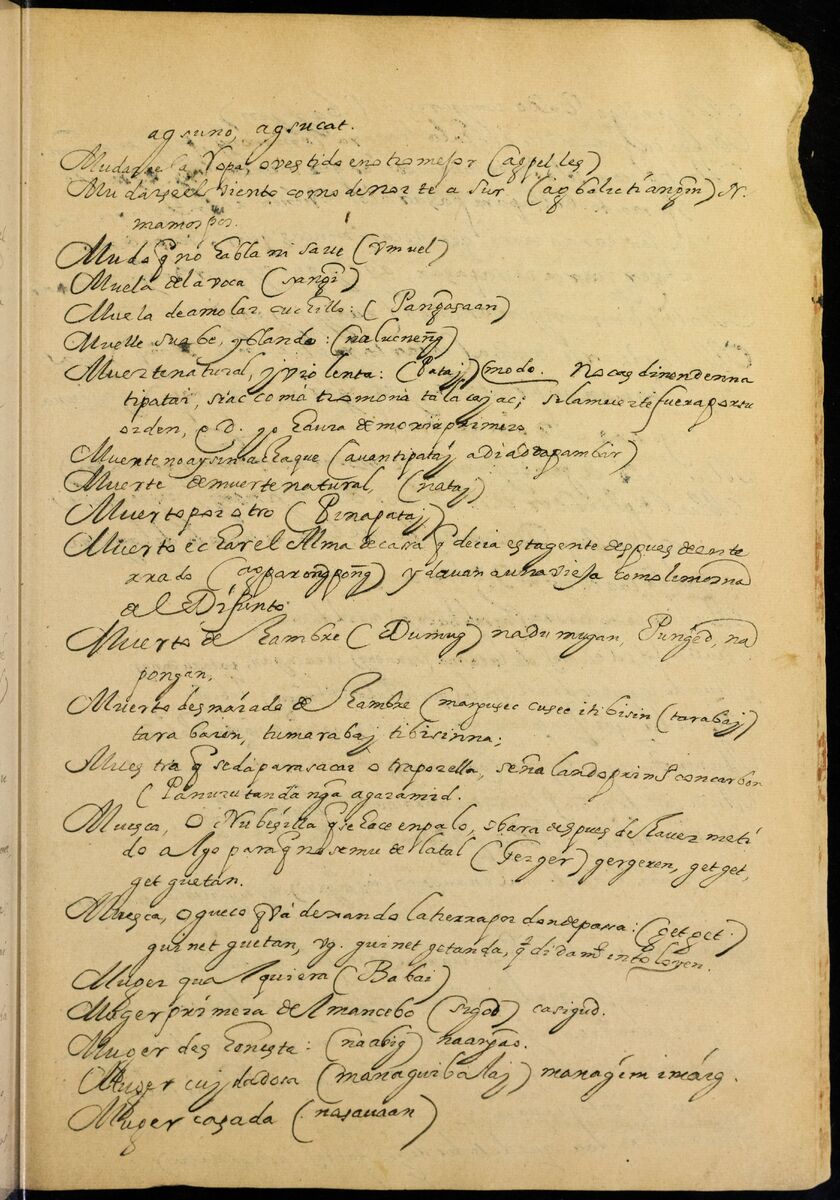 agsuno, agsucat.
Mudarse la Ropa, o vestido en otro mejor (agpelles)
Mudarse el viento como de norte a sur (agbalictiangin) N.
mamospos.
Mudo q̃ no habla ni save (vmuel)
Muela de la voca (sangi)
Muela de amolar cuchillo: (Pangasaan)
Muelle suabe, y blando: (nalucneng̃)
Muerte natural, j violenta: (Pataj) (modo.
tipatai, siac coma
orden, e D. yo havia de morir primero.
Muerte no ay sin achaque (auantipataj adi adda pambar)
Muerte de muerte natural, (nataj)
Muerto por otro (Pinapataj)
Muerto echar el Alma de casa q̃ decia esta gente despues de ente
rrado y davan a una vieja como limosna
al Difunto.
Muerto de Hambre (Dumug) nadumugan, Pung̃ed, na
pongan,
Muerto desmaiado de Hambre (marpusec cusec itibisin (tarabaj)
tarabasin, tumarabaj tibisinna;
Muestra q̃ se da para sacar otra por ella, señalando prim.º con carbon
(Panurutan da ng̃a agaramid.
Muesca, o Nubesilla q̃ se hace en palo, o bara despues de haver meti
do algo para q̃ no se mude la tal (gerger) gergeren, getget,
getguetan.
Muesca, o gueco q̃ va dexando la hierra por donde passa: (getget.)
guinetguetan, vg. guinetgetanda, q̃ diram.
Muger qualquiera (Babai)
Muger primera del mancebo (sigod) casigud.
Muger deshonesta: (naabig)
Muger cujdadosa (managuibalaj) managuim imáng.
Muger casada (nasauaan)